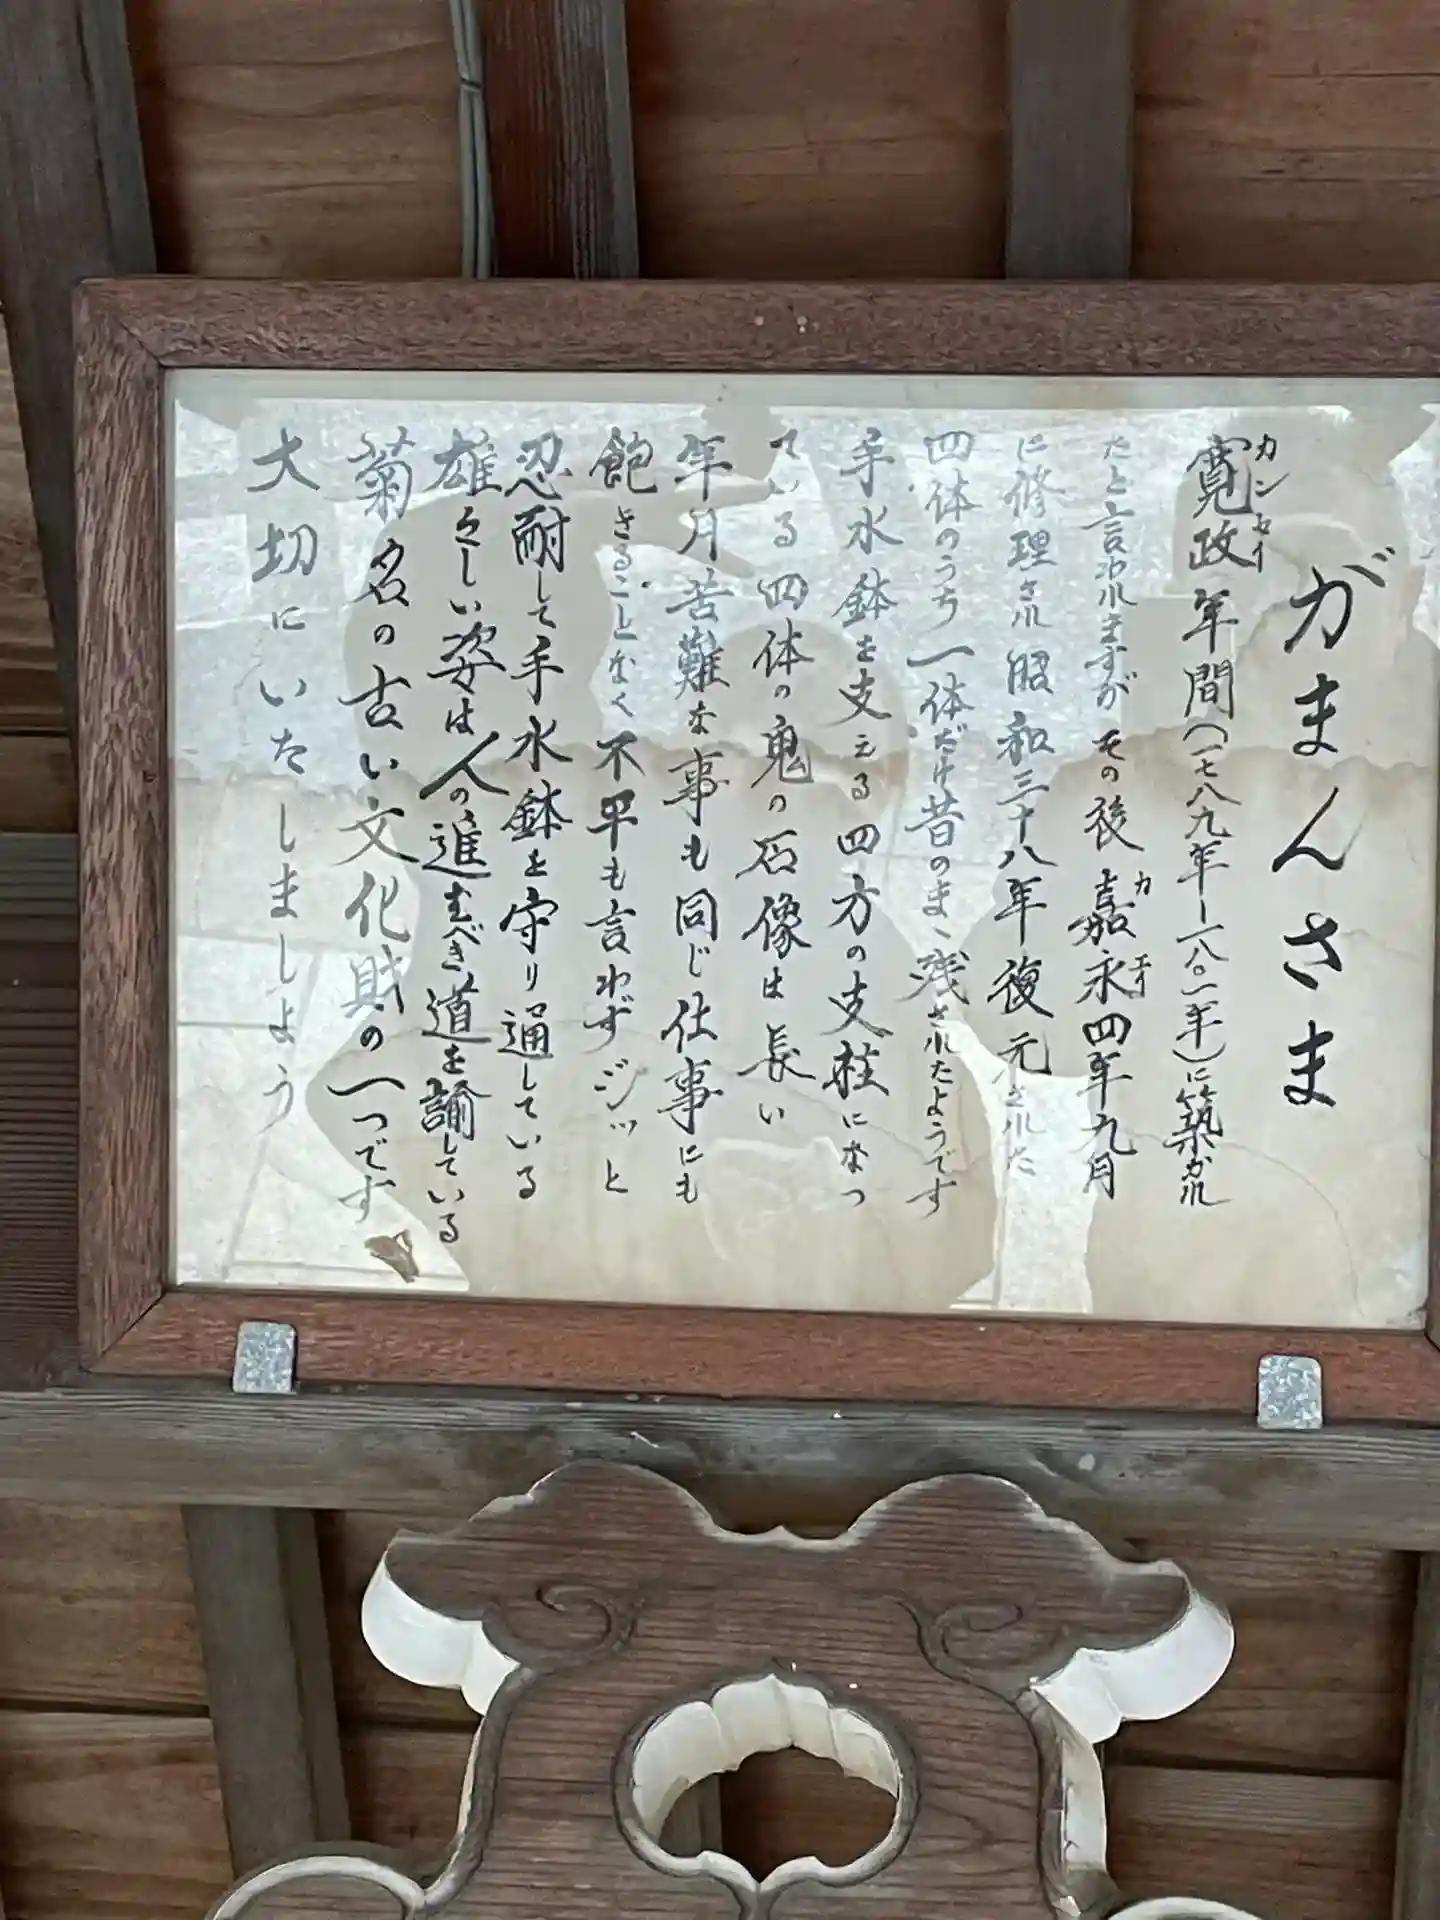 がまんさま
寛政年間(一七八九年―一八〇一年)に築かれ
カンセイ
たと言われますがその後嘉永四年九月
カエイ
に修理され昭和三十八年復元された
四体のうち一体だけ昔のまゝ残されたようです
手水鉢を支える四方の支柱になっ
ている四体の鬼の石像は長い
年月苦難な事も同じ仕事にも
飽きることなく不平も言わずジッと
忍耐して手水鉢を守り通している
雄々しい姿は人の進むべき道を諭している
菊名の古い文化財の一つです
大切にいたしましょう